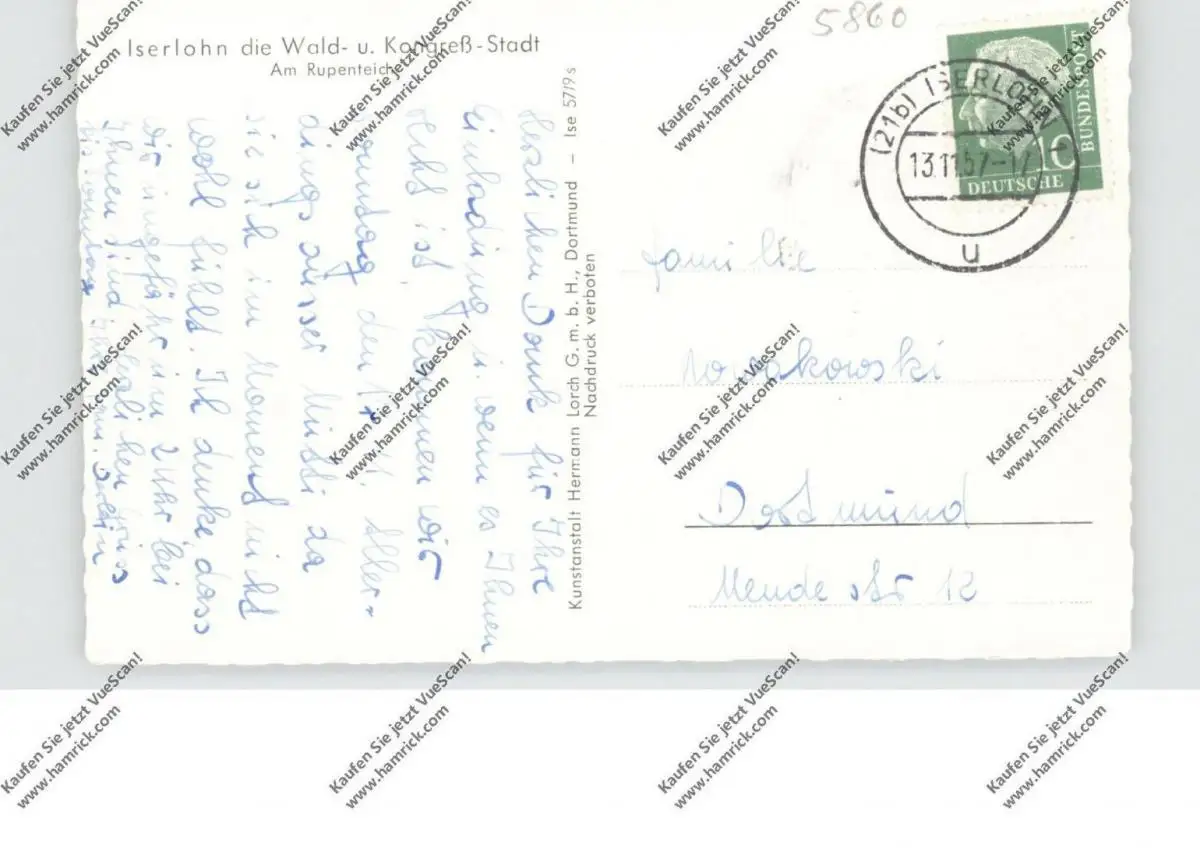 5860
Iserlohn die Wald- u. Kongreß-Stadt
Am Rupenteich
(21b) ISERLOHN
13.11.57-17
u
10
DEUTSCHE
BUNDESPOST
Herzlichen Dank für Ihre
Einladung u. wenn es Ihnen
recht ist, kommen wir
Sonntag den 17.11. Aller-
dings ausser Mutti da
sie sich im Moment nicht
wohl fühlt. Ich denke, dass
wir ungefähr um 2 Uhr bei
Ihnen sind
Kunstanstalt Hermann Lorch G. m. b. H., Dortmund – Ise 5719 s
Nachdruck verboten
Familie
Nowakowski
Dortmund
Mende str 12
Kaufen Sie jetzt VueScan!
www.hamrick.com
Kaufen Sie jetzt VueScan!
www.hamrick.com
Kaufen Sie jetzt VueScan!
www.hamrick.com
Kaufen Sie jetzt VueScan!
www.hamrick.com
Kaufen Sie jetzt VueScan!
www.hamrick.com
Kaufen Sie jetzt VueScan!
www.hamrick.com
Kaufen Sie jetzt VueScan!
www.hamrick.com
Kaufen Sie jetzt VueScan!
www.hamrick.com
Kaufen Sie jetzt VueScan!
www.hamrick.com
Kaufen Sie jetzt VueScan!
www.hamrick.com
Kaufen Sie jetzt VueScan!
www.hamrick.com
Kaufen Sie jetzt VueScan!
www.hamrick.com